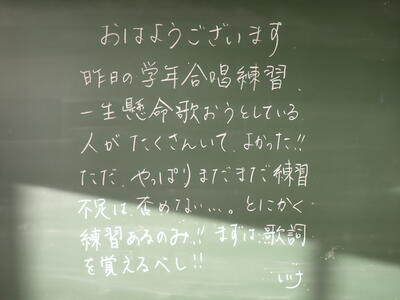 おはようございます
昨日の学年合唱練習、
一生懸命歌おうとしている
人がたくさんいて、よかった!!
ただ、やっぱりまだまだ練習
不足は、否めない…。とにかく
練習あるのみ!! まずは、歌詞
を覚えるべし!!
いけ